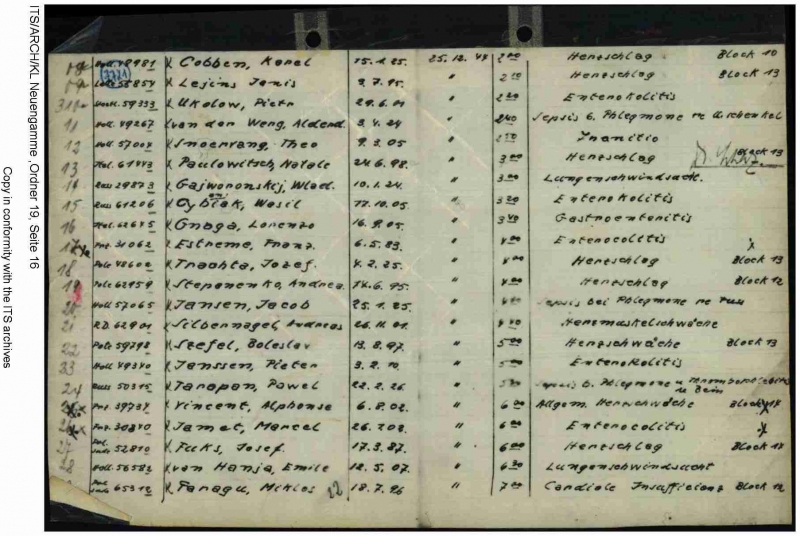 ITS/ARCH/KL Neuengamme, Ordner 19, Seite 16
Copy in conformity with the ITS archives
Holl. 48981 Cobben, Karel 15.1.25. 25.12.44 2 00 Herzschlag Block 10
58854 Lejins Janis 9.7.95. " 2 10 Herzschlag Block 13
59333 Ukolow, Pietr 29.6.01 " 2 20 Enterokolitis
11 Holl. 49267 van der Weng, 3.4.24 " 2 40 Sepsis b. Phlegmone re
12 Holl. 57004 Snoervang, Theo 9.3.05 " 2 50 Inanitio
13 Ital. 61443 Paulowitsch, Natale 24.6.98. " 3 00 Herzschlag Block 13
14 Russ 29873 Gajworonskij, Wlad. 10.1.24. " 3 00 Lungenschwindsucht.
15 Russ 61206 Wasil 17.10.05 " 3 20 Enterokolitis
16 Ital. 62675 Gnaga, Lorenzo 16.9.05. " 3 40 Gastroenteritis
17 Frz. 31062 Estreme, Franz. 6.5.83. " 4 00 Enterocolitis
18 Pole 48602 Trachta, Jozef. 4.2.25. " 4 00 Herzschlag Block 13
19 Pole 62959 Steponenko, Andrea. 14.6.95. " 4 00 Herzschlag Block 12
20 Holl 57065 Jansen, Jacob 25.1.25. " 4 00 Sepsis bei Phlegmone re Fuss
21 R.D. 62901 Silbernagel, Andreas 26.11.01. " 4 40 Herzmuskelschwäche
22 Pole 59798 Seefel, Boleslav 13.8.97. " 5 00 Herzschwäche Block 13
23 Holl 49340 Janssen, Pieter 3.2.10. " 5 00 Enterokolitis
24 Russ 50315 Tarapan, Pawel 22.2.26. " Sepsis b. Phlegmone u
re Bein
Frz. 39737 Vincent, Alphonse 6.8.02. " 6 00 Allgem. Herzschwäche
Frz. 30840 Jamet, Marcel " 6 00 Enterocolitis
27 Pol. Jude 52810 Fuks, Josef. 17.3.87. " 6 00 Herzschlag Block 17
28 Holl 56582 van Hanja, Emile 12.5.07. " 6 30 Lungenschwindsucht
Jude 65312 Faragu, Miklos 22 18.7.96 " 7 00 Cardiale Insufficienz Block 12